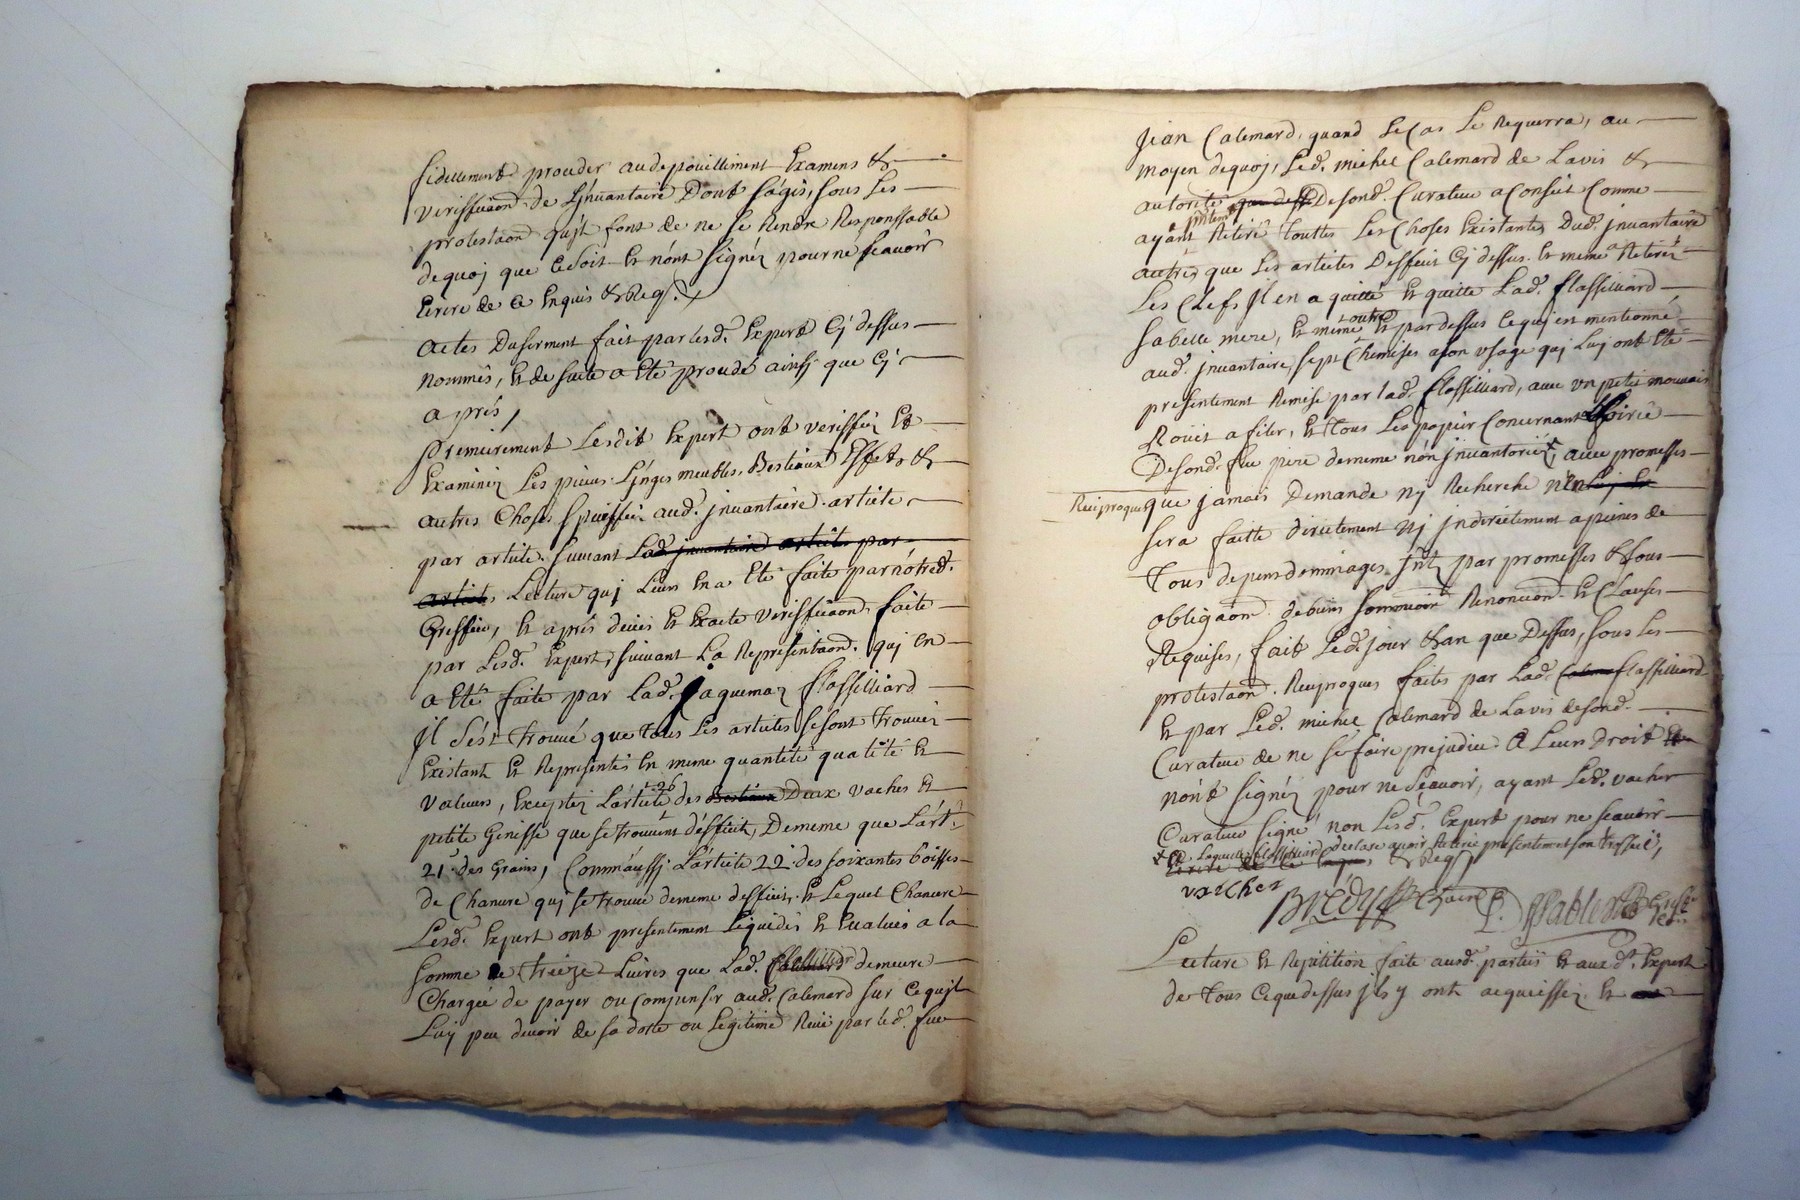 fidellement proceder au depouilliment Examens &
veriffication de L'jnvantaire Dont s'agis, sous Les
protestaon qu'jl font de ne se Rendre Responssable
dequoj que ce soit Et n'ont signéz pour ne scavoir
Ecrire de ce Enquis & Req.
Actes Du serment fait par lesd. Expert Cj dessus
nommés, Et de suite a Eté proucedé ainsj que Cj
aprés,
Premierement Lesdit Expert ont veriffiéz Et
Examinéz Les pieces Linges meubles, Bestiaux Effets &
autres Choses speciffiéz aud. jnvantaire article
par article suivant Lad. jnvantaire article par
article, Lecture quj Leurs En a Eté faite par nôtred.
Greffier, Et aprés deuee Et Exacte veriffication faite
par Lesd. Expert, suivant La Représentaon quj En
a Eté faite par Lad. Jaquemaz flassilliard
Jl s'est trouvé que tous Les articles se sont trouvéz
Existant Et Representés En meme quantité qualité Et
valeurs, Exceptéz L'article 26 des Bestiaux Deux vaches Et
petite Genisse que se trouvent défficit, De meme que L'art.
21. des Grains, Comm'aussj L'article 22. des soixantes boisses
de Chanvre quj se trouve de meme defficit, Et Lequel Chanvre
Lesd. Expert ont presentement Liquidés Et Evalués a la
somme de treize Livres que Lad. flassilliard demeure
Chargée de payer ou compenser aud. Calemard sur ce qu'jl
Luy peu devoir de sa dotte ou Legitime Receu par led. feu
Jean Calemard, quand Le Cas Le Requerra, au
moyen dequoj, Led. michel Calemard de L'avis &
autorité que dess De sond. Curateur a Confeté Comme
ayant Retiré touttes Les Choses Existantes Dud. jnvantaire
autres que Les articles Defficit Cj dessus. Et meme a Retiréz
Les Clefs Jl en a quitté Et quitte Lad. flassilliard
sa belle mere, Et meme outre Et par dessus ce quj est mentionné
aud. jnvantaire, sept Chemises a son usage quj Luy ont Eté
presentement Remise par lad. flassilliard, avec un petit mouvais
Rouët a filer, Et tous Les papier Concernant L'hoirie
De sond. feu pere de meme nón jnvantoriéz, + avec promesses
Reciproques que jamais Demande nj Recherche n'En
sera faitte directement nj jndirectement a peines de
tous depens dommages jnt par promesses & sous
obligaon de biens Renonciaon Et Clauses
Requises, fait Led. jour & an que Dessus, sous Les
protestaon Reciproques faites par Lad. flassilliard
Et par Led. michel Calemard de L'avis de sond.
Curateur de ne se faire prejudice A Leurs Droit Et
n'ont signéz pour ne scavoir, ayant Led. vacher
Curateur signé non Lesd. Expert pour ne scavoir
+ Laquelle flassilliard declare avoir Retiré presentement son trossel,
Ecrire de ce Enquis, & Req.
vacher
Lecture Et Repétition faite ausd. partie Et auxd. Expert
de tous ce que dessus jls y ont acquiessez Et